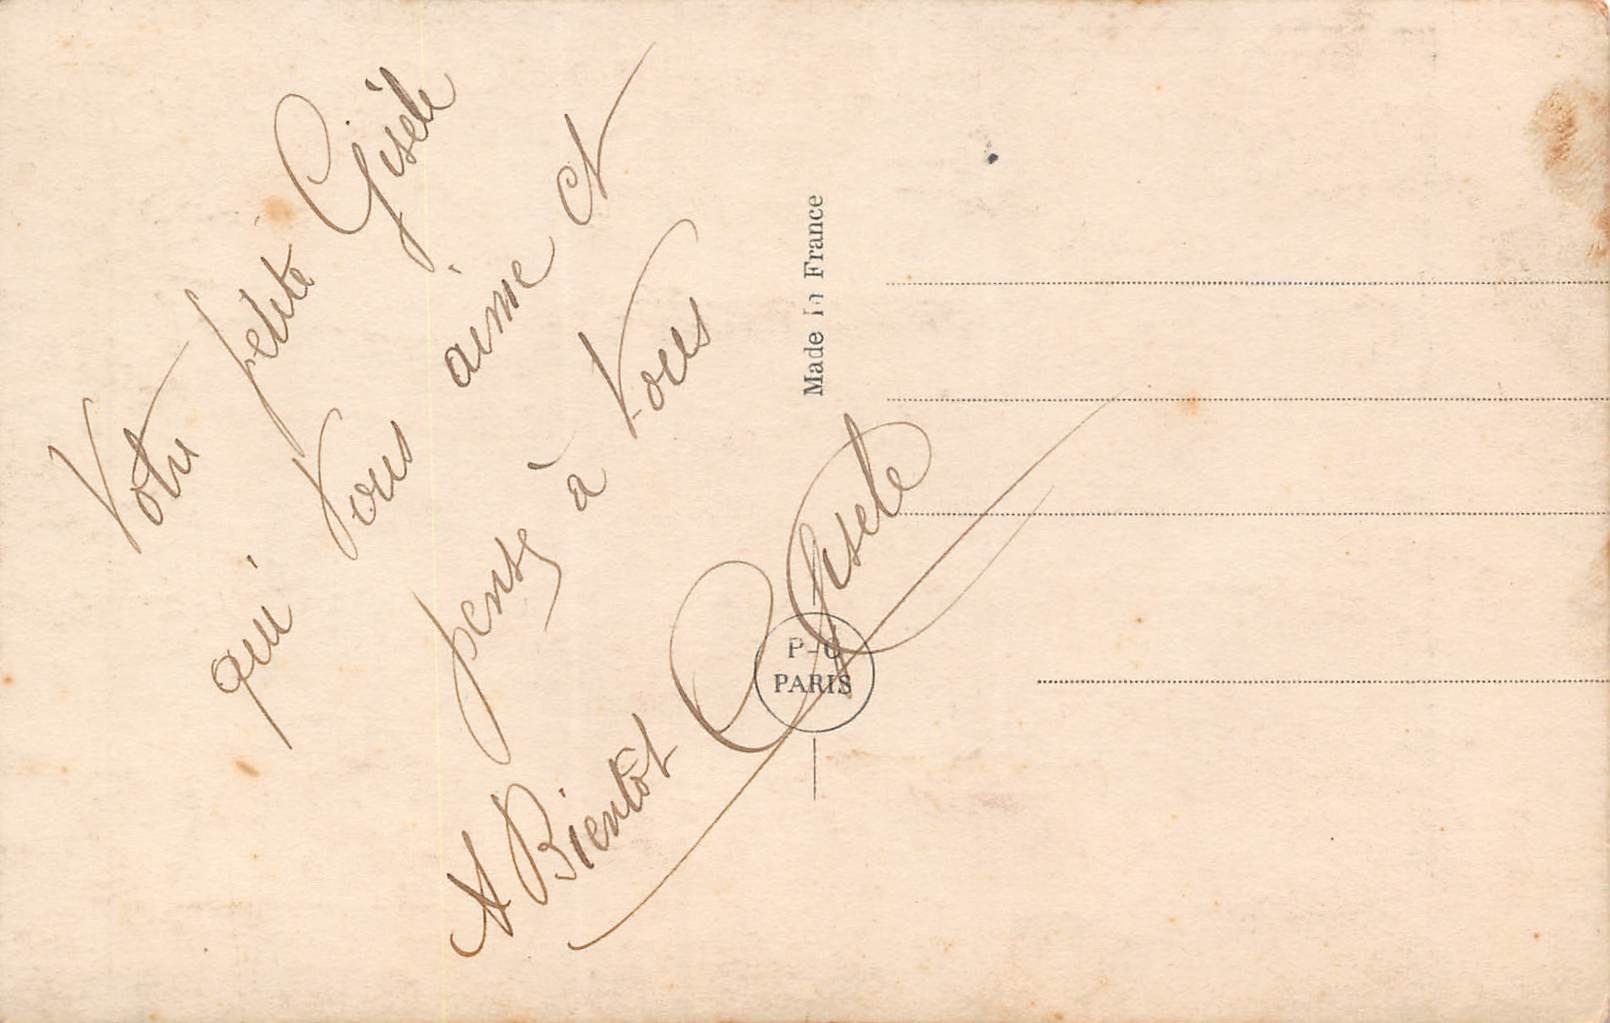 Votre petite Gisèle
qui Vous aime et
pense à Vous
A Bientôt Gisele
Made in France
PARIS